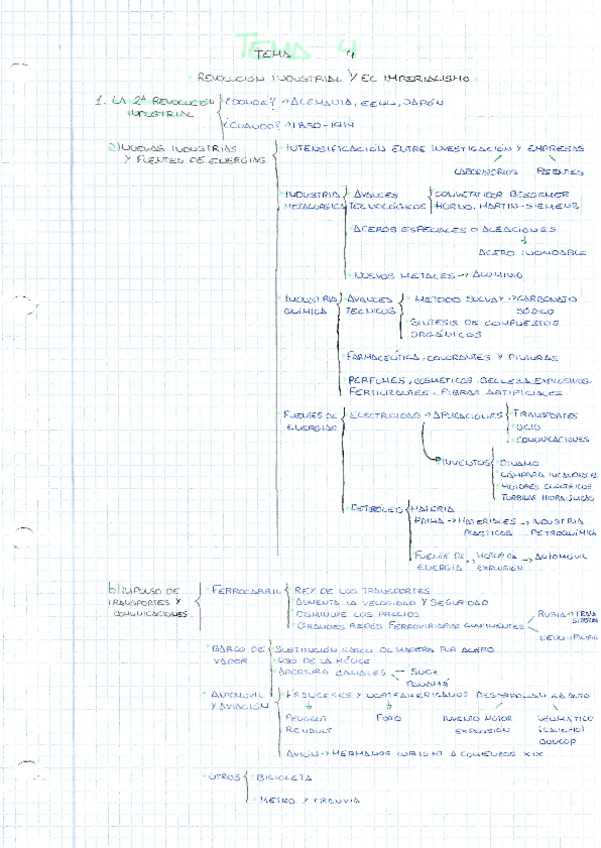 TEMA 4
TEMA 4
REVOLUCIÓN INDUSTRIAL Y EL IMPERIALISMO
1. LA 2ª REVOLUCIÓN INDUSTRIAL
¿DONDE? → ALEMANIA, EEUU, JAPÓN
¿CUANDO? → 1850-1914
a) NUEVAS INDUSTRIAS
Y FUENTES DE ENERGIAS
INTENSIFICACIÓN ENTRE INVESTIGACIÓN Y EMPRESAS
LABORATORIOS PATENTES
INDUSTRIA METALURGICA
AVANCES TECNOLÓGICOS
CONVERTIDOR BESSEMER
HORNO, MARTIN-SIEMENS
ACEROS ESPECIALES O ALEACIONES
ACERO INOXIDABLE
NUEVOS METALES → ALUMINIO
INDUSTRIA QUIMICA
AVANCES TECNICOS
METODO SOLVAY → CARBONATO SÓDICO
SINTESIS DE COMPUESTOS ORGÁNICOS
FARMACEÚTICA, COLORANTES Y PINTURAS
PERFUMES, COSMÉTICOS BELLEZA, EXPLOSIVOS
FERTILIZANTES, FIBRAS ARTIFICIALES
FUENTES DE ENERGIAS
ELECTRICIDAD → APLICACIONES
TRANSPORTES
OCIO
COMUNICACIONES
INVENTOS
DINAMO
LÁMPARA
MOTORES ELECTRICOS
TURBINAS HIDRÁULICAS
PETRÓLEO
MATERIA PRIMA → MATERIALES PLASTICOS → INDUSTRIA PETROQUÍMICA
FUENTE DE ENERGIA → MOTOR DE EXPLOSIÓN → AUTOMOVIL
b) IMPULSO DE
TRANSPORTES Y
COMUNICACIONES
FERROCARRIL
REY DE LOS TRANSPORTES
AUMENTA LA VELOCIDAD Y SEGURIDAD
DISMINUYE LOS PRECIOS
GRANDES REDES FERROVIARIAS CONTINENTES
RUSIA →
EEUU →
BARCO DE VAPOR
SUSTITUCIÓN CASCO DE MADERA POR ACERO
USO DE LA HÉLICE
APERTURA CANALES
SUEZ
PANAMÁ
AUTOMOVIL Y AVIACIÓN
FRANCESES Y NORTEAMERICANOS DESARROLLAN EL AUTO
PEUGEOT RENAULT
FORD
INVENTO MOTOR EXPLOSIÓN
NEUMATICO (CAUCHO) DUNLOP
AVIÓN → HERMANOS WRIGHT A COMIENZOS XIX
OTROS
BICICLETA
METRO Y TRANVIA